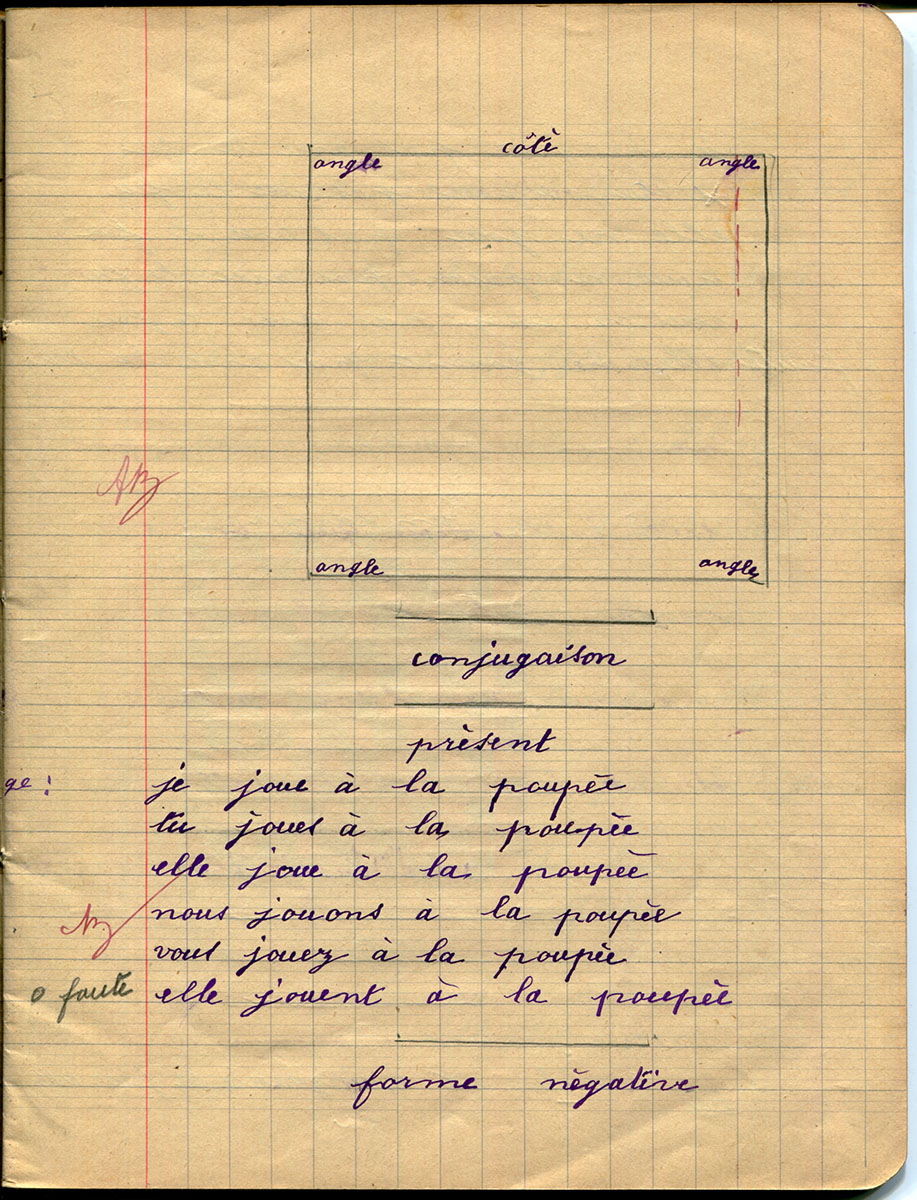 côté
angle angle
angle angle
conjugaison
présent
ge!
je joue à la poupée
tu joues à la poupée
elle joue à la poupée
nous jouons à la poupée
vous jouez à la poupée
0 faute
elle jouent à la poupée
forme négative